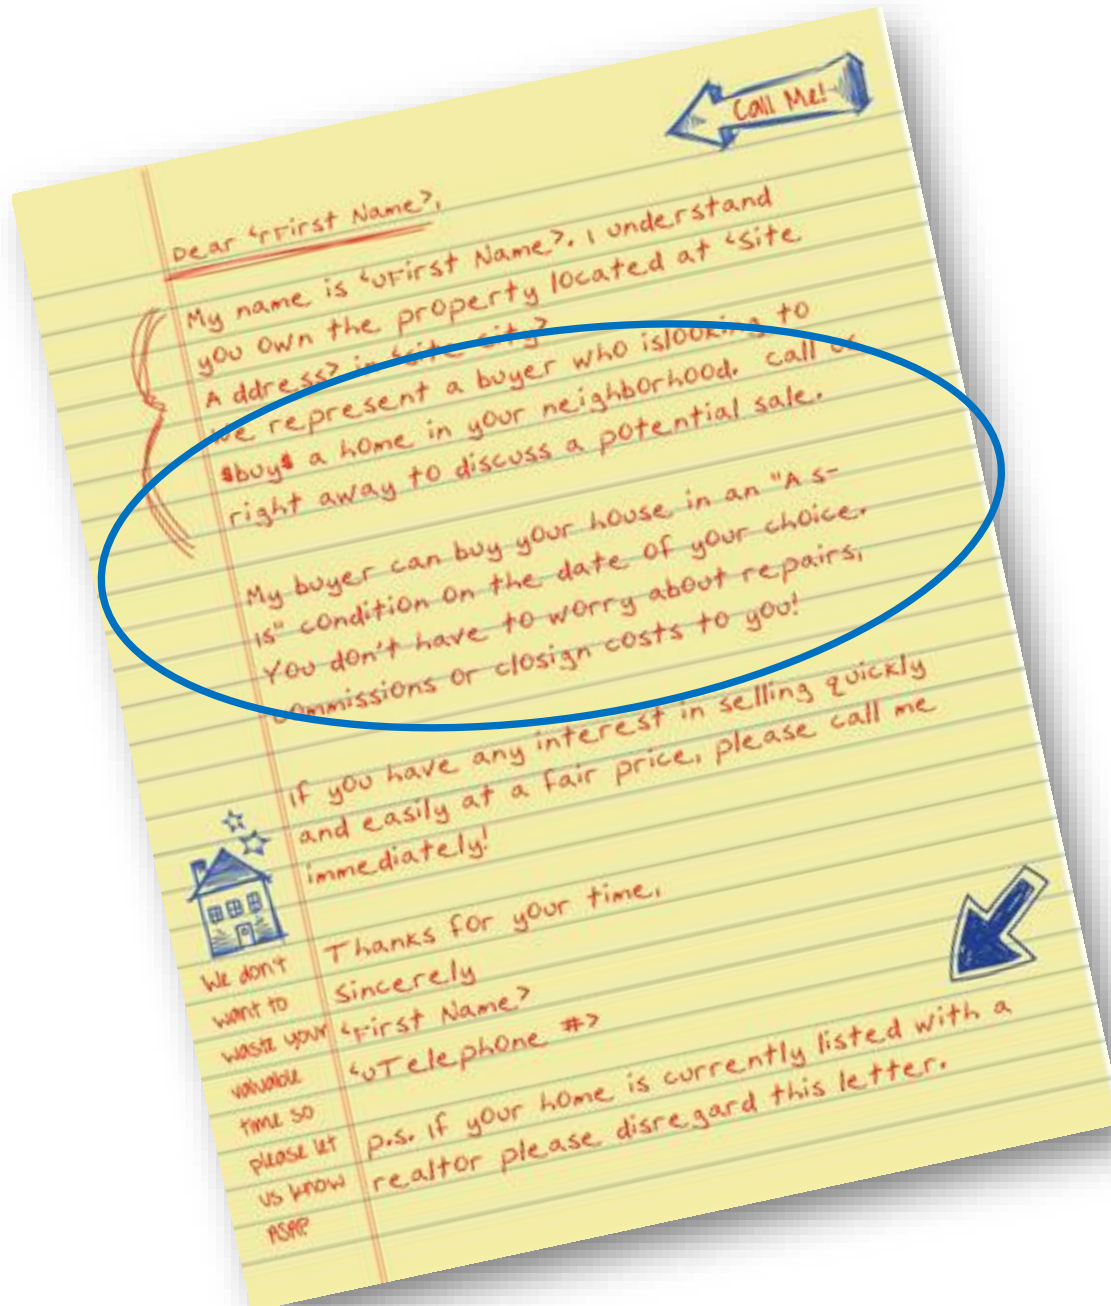 Call Me!
Dear <rFirst Name>,
My name is <uFirst Name>. I understand
you own the property located at <Site
Address> in <Site City>
We represent a buyer who islooking to
$buy$ a home in your neighborhood. call us
right away to discuss a potential sale.
My buyer can buy your house in an "As-
is" condition on the date of your choice.
You don't have to worry about repairs,
commissions or closign costs to you!
if you have any interest in selling quickly
and easily at a fair price, please call me
immediately!
Thanks for your time,
Sincerely
<First Name>
<uTelephone #>
p.s. if your home is currently listed with a
realtor please disregard this letter.
We don't
want to
waste your
valuable
time so
please let
us know
ASAP